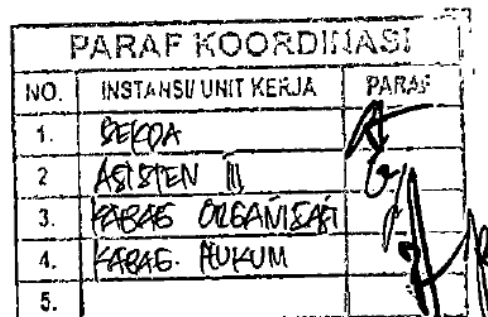 PARAF KOORDINASI
NO. INSTANSI/ UNIT KERJA PARAF
1. SEKDA
2 ASISTEN III
3. KABAG ORGANISASI
4. KABAG. HUKUM
5.